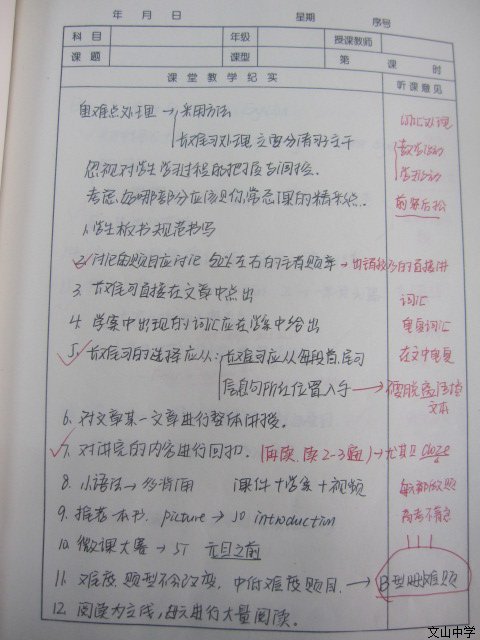 年 月 日 星期 序号
科目 年级 授课教师
课题 课型 第 课 时
课堂教学纪实 听课意见
重难点处理 → 采用方法 词汇处理
长难句处理 立两分清好主干 教学活动
忽视对学生学习过程的把握与问检. 学生活动
考虑, 如哪部分应该是你常态课的精彩点. 前紧后松
1. 学生板书规范书写
2. 讨论的题目应讨论 左右的有题率 → 的直接讲
3. 长难句直接在文章中点出 词汇
4. 学案中出现的词汇应在学案中给出 重复词汇
5. 长难句的选择应从: 长难句应从每段首, 尾句 在文中重复
信息句所在位置入手 → 要脱盖 文本
6. 对文章某一文章进行整体讲授.
7. 对讲完的内容进行回扣. (再读, 读2-3遍) → 尤其是 cloze
8. 小语法 → 多背用 课件+学案+视频 全部做题
9. 推荐一本书. picture → so introduction 高考不肯定
10. 微课大赛 → 5T 元旦之前
11. 难度, 题型不会改变, 中低难度题目. → B型阅难题
12. 阅读为主线, 每天进行大量阅读.
文山中学